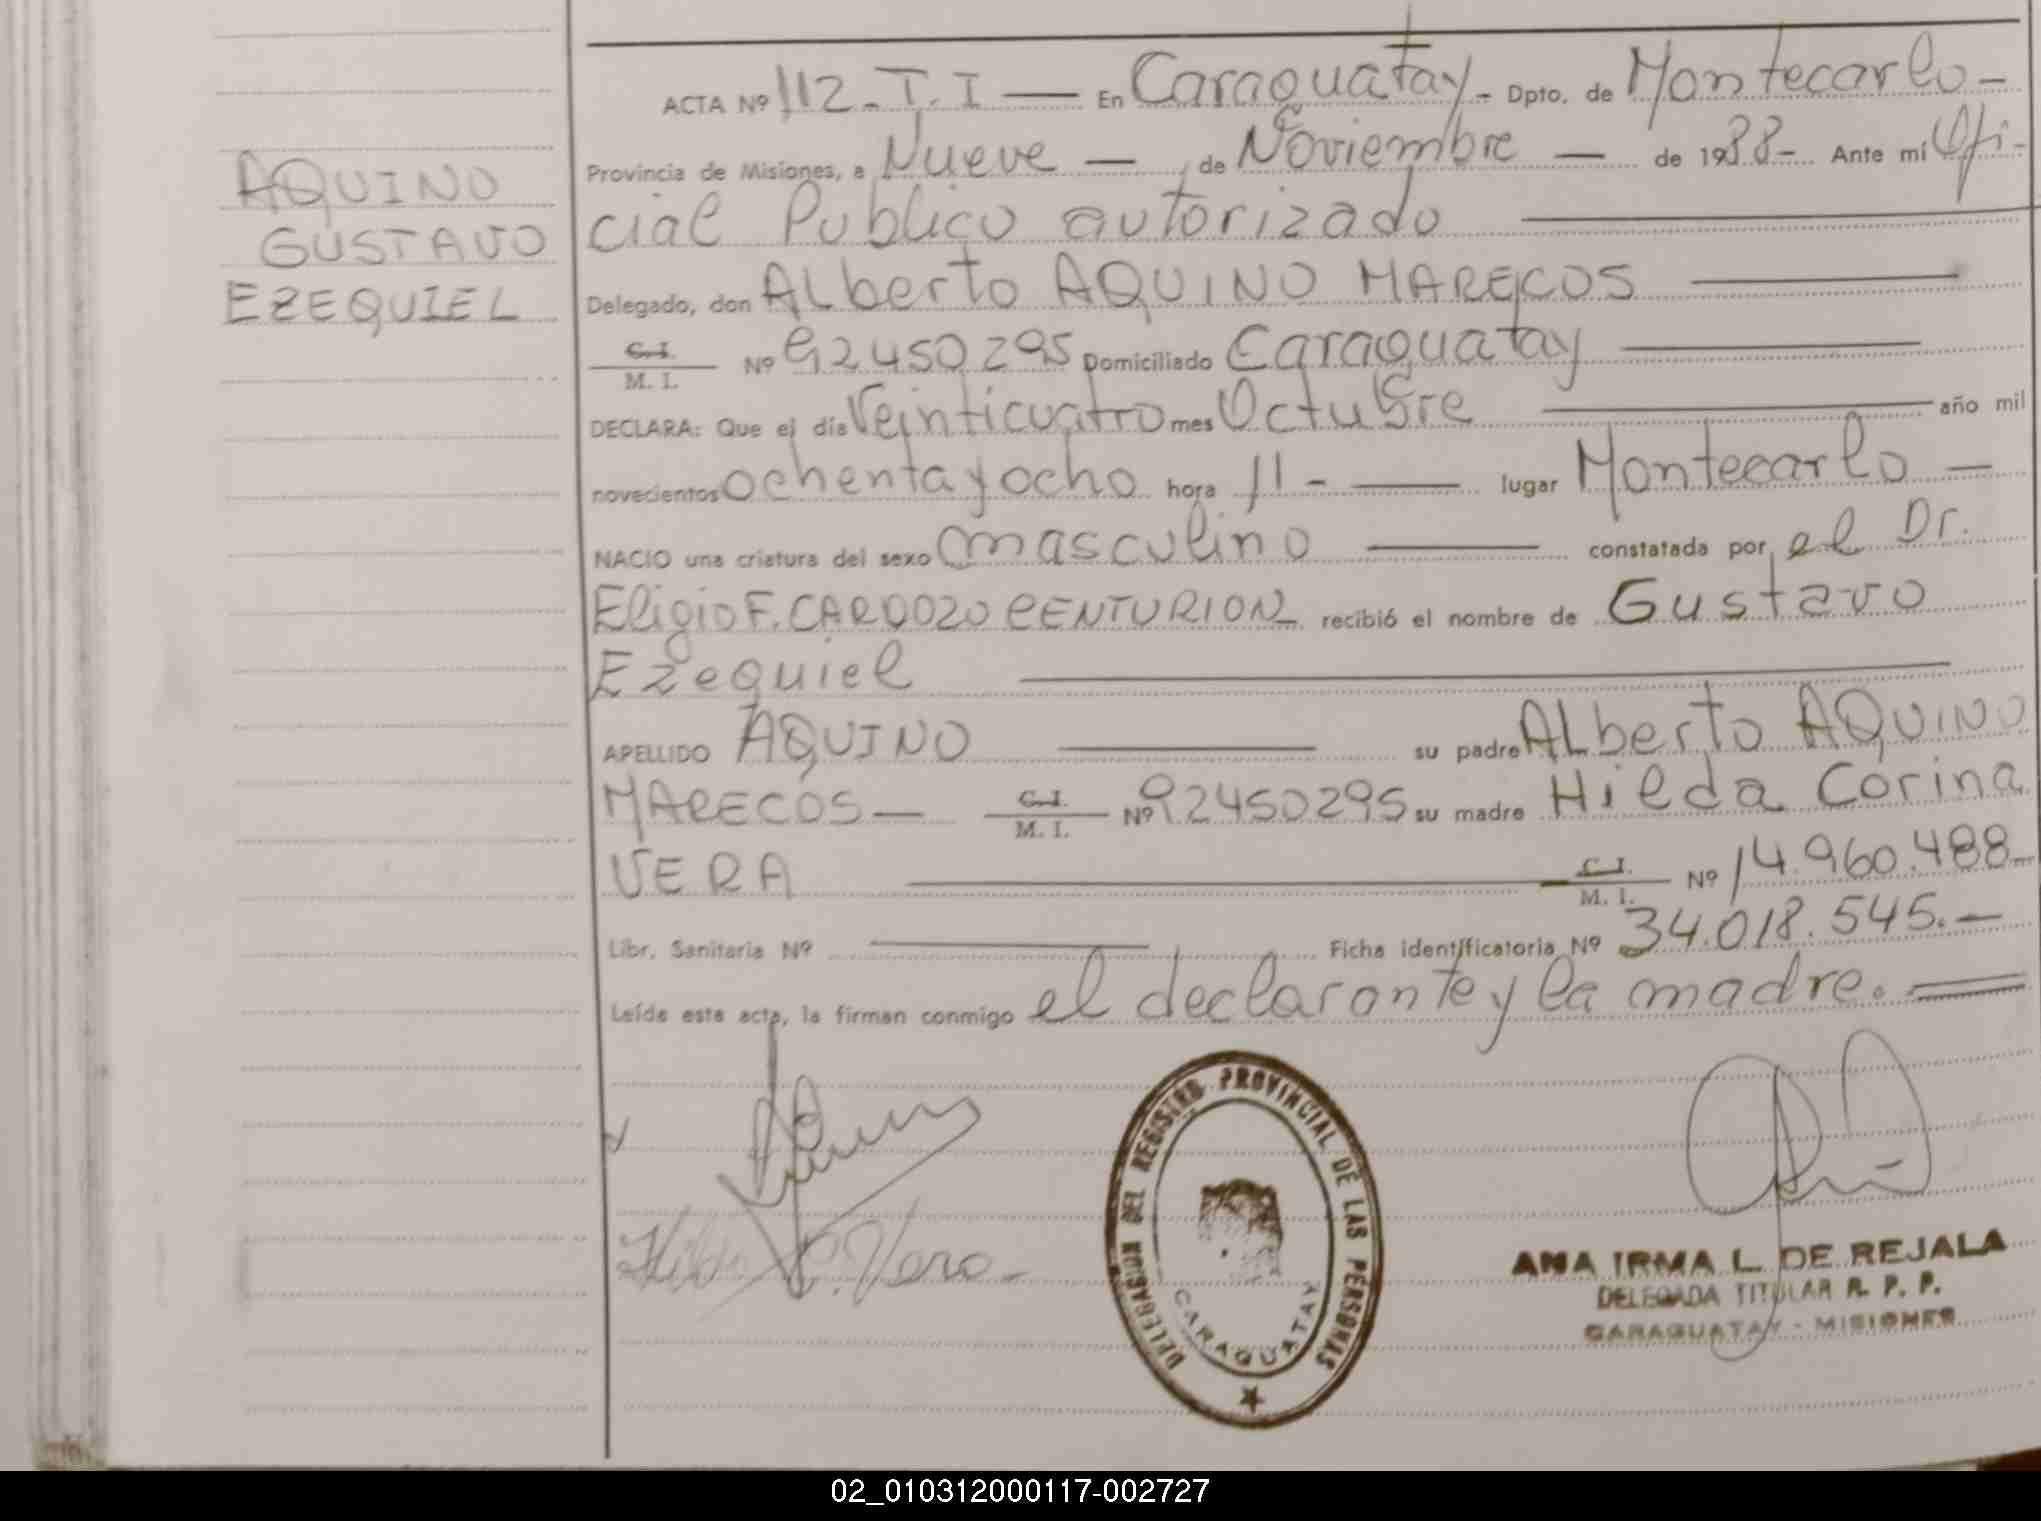 AQUINO
GUSTAVO
EZEQUIEL
ACTA Nº 112 - T. I — En Caraguatay - Dpto. de Montecarlo -
Provincia de Misiones, a Nueve — de Noviembre — de 1988 - Ante mí Ofi-
cial Publico autorizado
Delegado, don Alberto AQUINO MARECOS
C.I.
M. I. Nº 92450295 Domiciliado Caraguatay
DECLARA: Que el día Veinticuatro mes Octubre año mil
novecientos ochenta y ocho hora 11 - — lugar Montecarlo —
NACIO una criatura del sexo masculino — constatada por el Dr.
Eligio F. CARDOZO CENTURION recibió el nombre de Gustavo
Ezequiel
APELLIDO AQUINO — su padre Alberto AQUINO
MARECOS — C.I. M. I. Nº 92450295 su madre Hilda Corina
VERA — C.I. M. I. Nº 14.960.488
Libr. Sanitaria Nº — Ficha identificatoria Nº 34.018.545. —
Leída esta acta, la firman conmigo el declarante y la madre. =
Hilda C. Vera -
DELEGACION DEL REGISTRO PROVINCIAL DE LAS PERSONAS
CARAGUATAY
ANA IRMA L. DE REJALA
DELEGADA TITULAR R. P. P.
CARAGUATAY - MISIONES
02_010312000117-002727